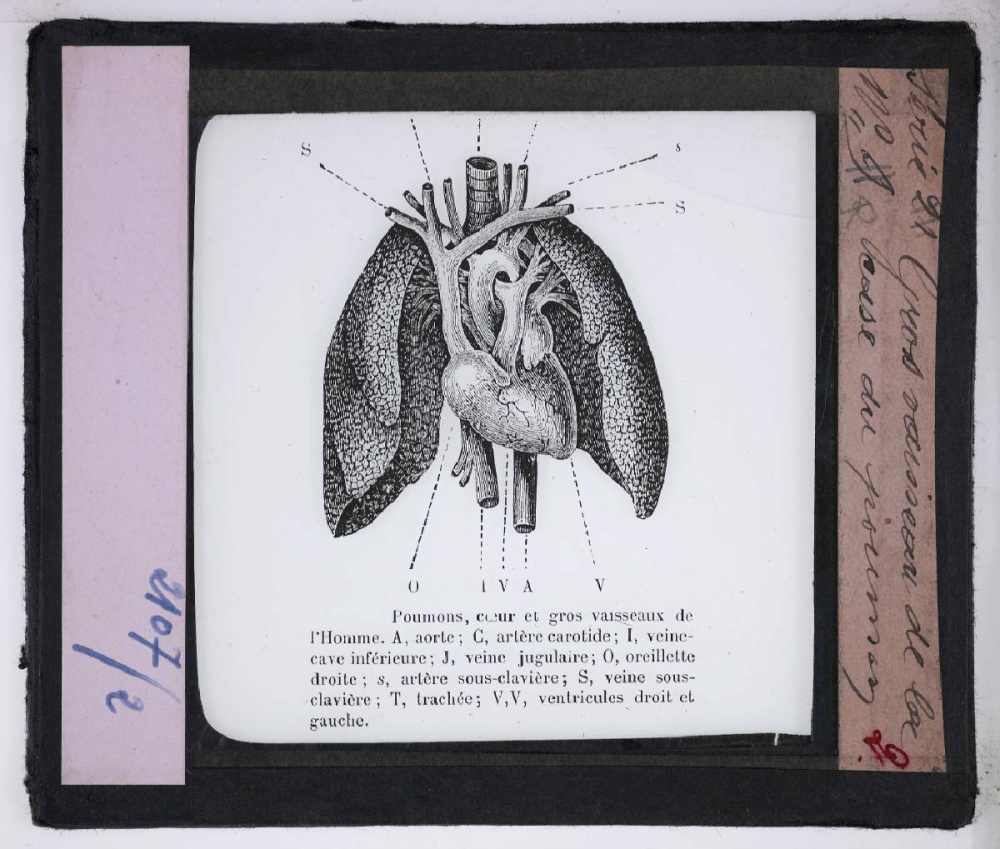 S
s
S
O I V A V
Poumons, cœur et gros vaisseaux de
l'Homme. A, aorte; C, artère carotide; I, veine-
cave inférieure; J, veine jugulaire; O, oreillette
droite; s, artère sous-clavière; S, veine sous-
clavière; T, trachée; V,V, ventricules droit et
gauche.
2107/2
Série 21 Gros vaisseau de la
base du poumon